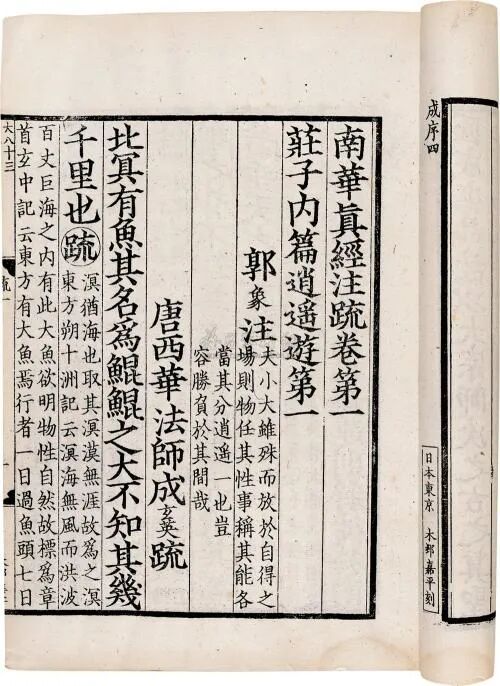 成序四
日本東京 木邨嘉平刻
南華眞經注疏卷第一
莊子内篇逍遥遊第一
郭象注
夫小大雖殊而放於自得之
場則物任其性事稱其能各
當其分逍遥一也豈
容勝負於其間哉
唐西華法師成玄英疏
北冥有魚其名爲鯤鯤之大不知其幾
千里也疏
溟猶海也取其溟漠無涯故爲之溟
東方朔十洲記云溟海無風而洪波
百丈巨海之内有此大魚欲明物性自然故標爲章
首玄中記云東方有大魚焉行者一日過魚頭七日
大八十三